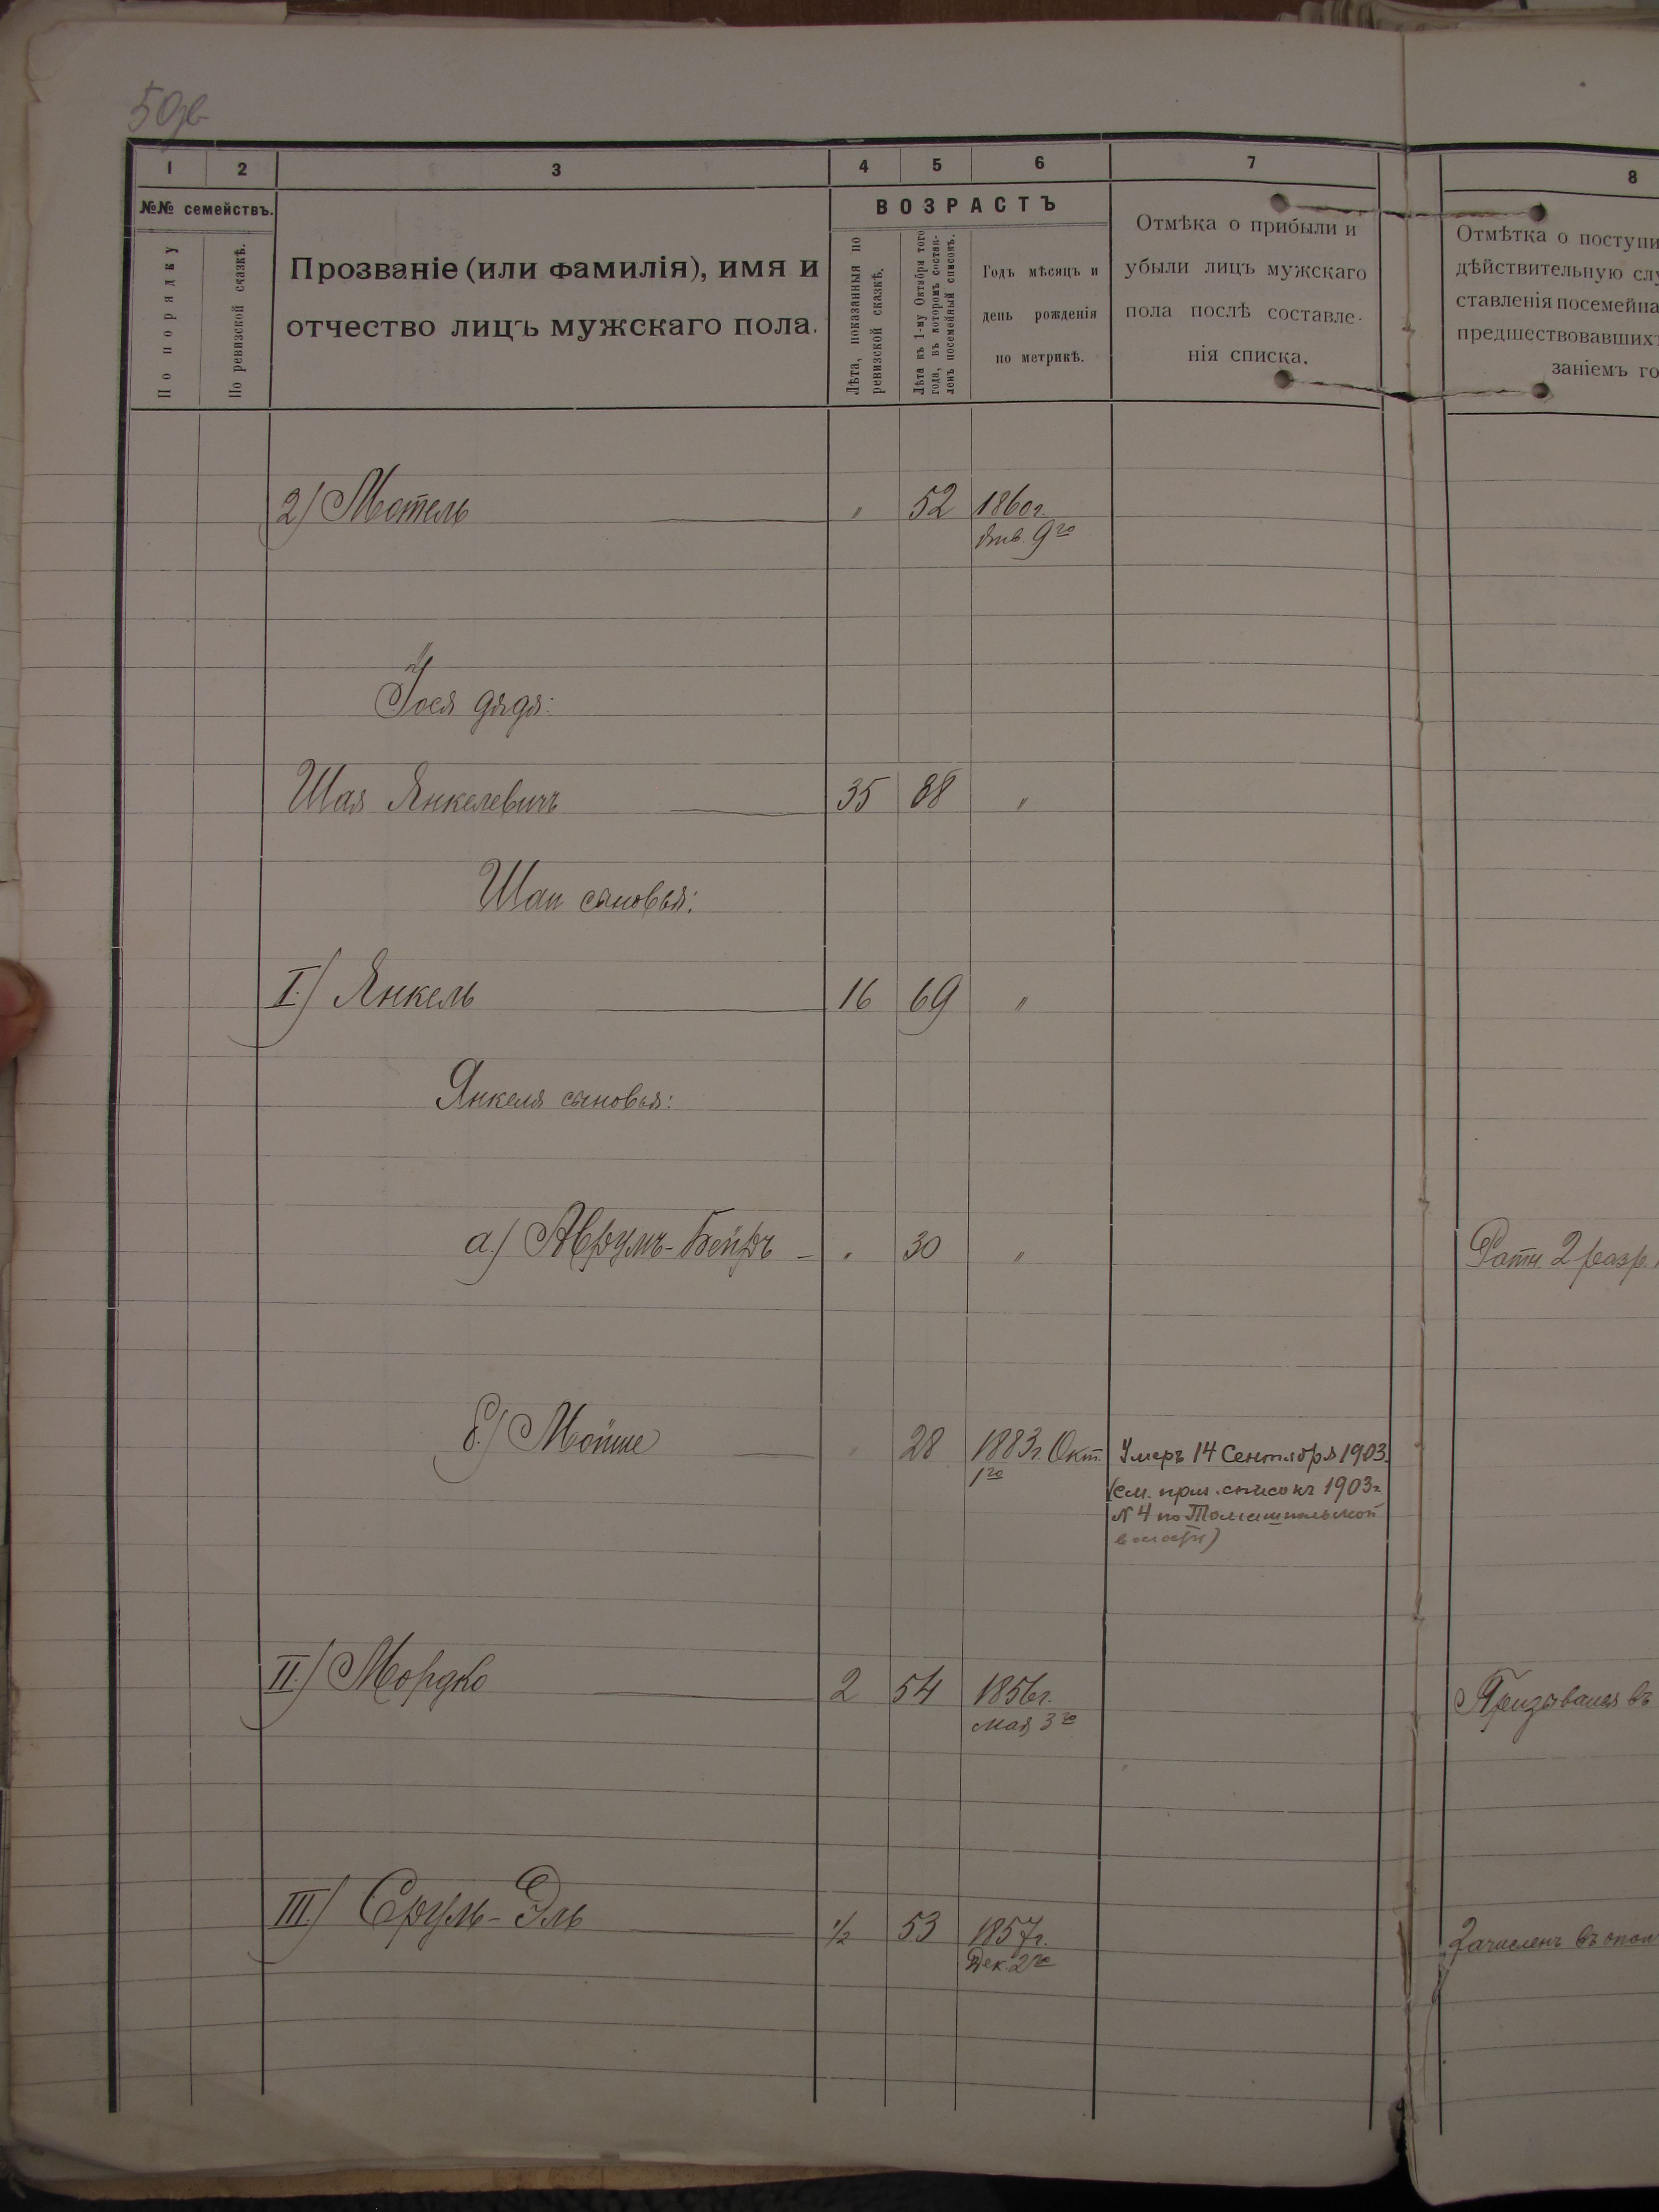 50об
1 2 3 4 5 6 7 8
№№ семействъ.
По порядку
По ревизской сказкѣ.
Прозваніе (или фамилія), имя и
отчество лицъ мужскаго пола.
ВОЗРАСТЪ
Лѣта, показанныя по
ревизской сказкѣ.
Лѣта къ 1-му Октября того
года, въ которомъ состав-
ленъ посемейный списокъ.
Годъ мѣсяцъ и
день рожденія
по метрикѣ.
Отмѣка о прибыли и
убыли лицъ мужскаго
пола послѣ составле-
нія списка.
Отмѣтка о поступи
дѣйствительную слу
ставленія посемейна
предшествовавших
заніемъ го
2) Мотель " 52 1860г.
Янв. 9го
Іося дядя:
Шая Янкелевичъ 35 88 "
Шаи сыновья:
I.) Янкель 16 69 "
Янкеля сыновья:
а.) Аврумъ-Бейръ " 30 " Ратн. 2 разр.
б.) Мойше " 28 1883г. Окт. Умеръ 14 Сентября 1903.
1го
(см. приз. списокъ 1903г.
№ 4 по Томашпольской
волости)
II.) Мордко 2 54 1856г. Призывался въ
мая 3го
III.) Сруль-Эль 1/2 53 1857г. Зачисленъ въ опол
Дек. 2го